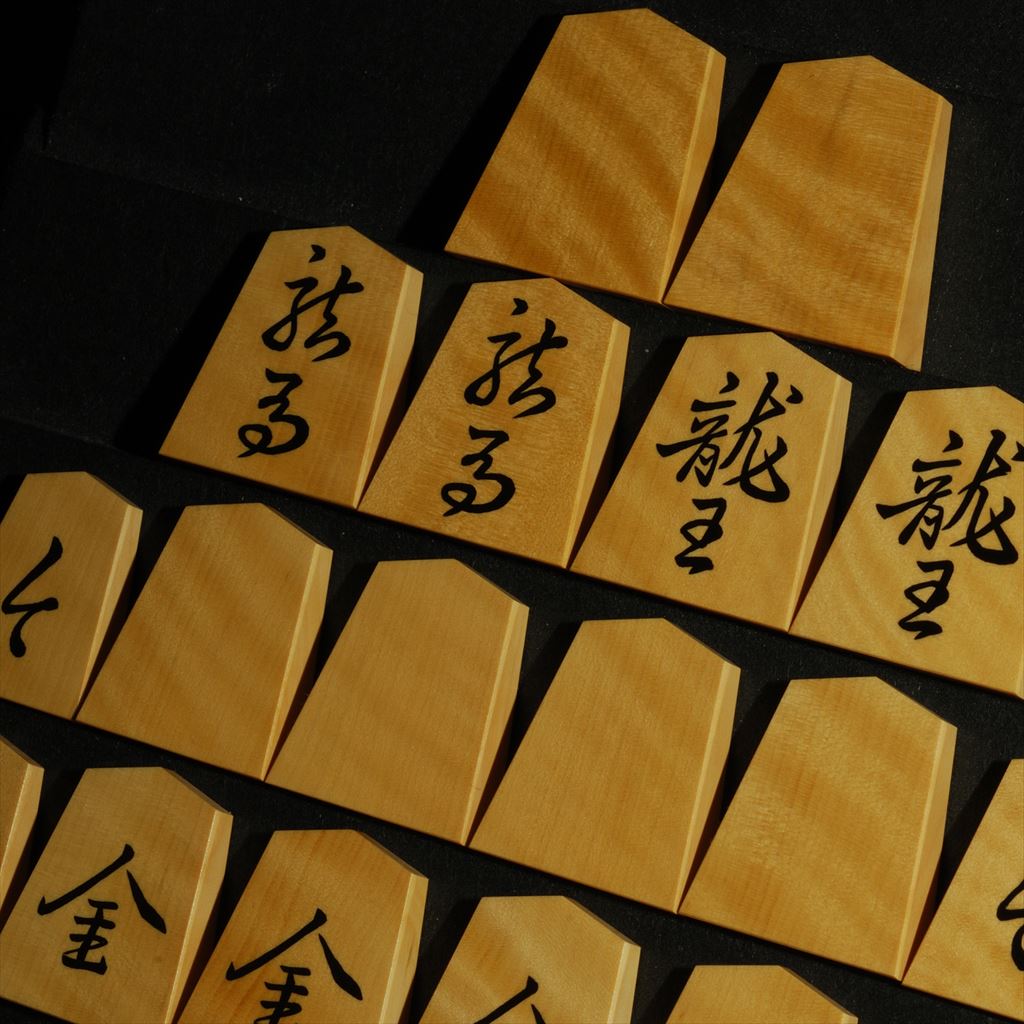 龍馬
龍馬
龍王
龍王
金
金